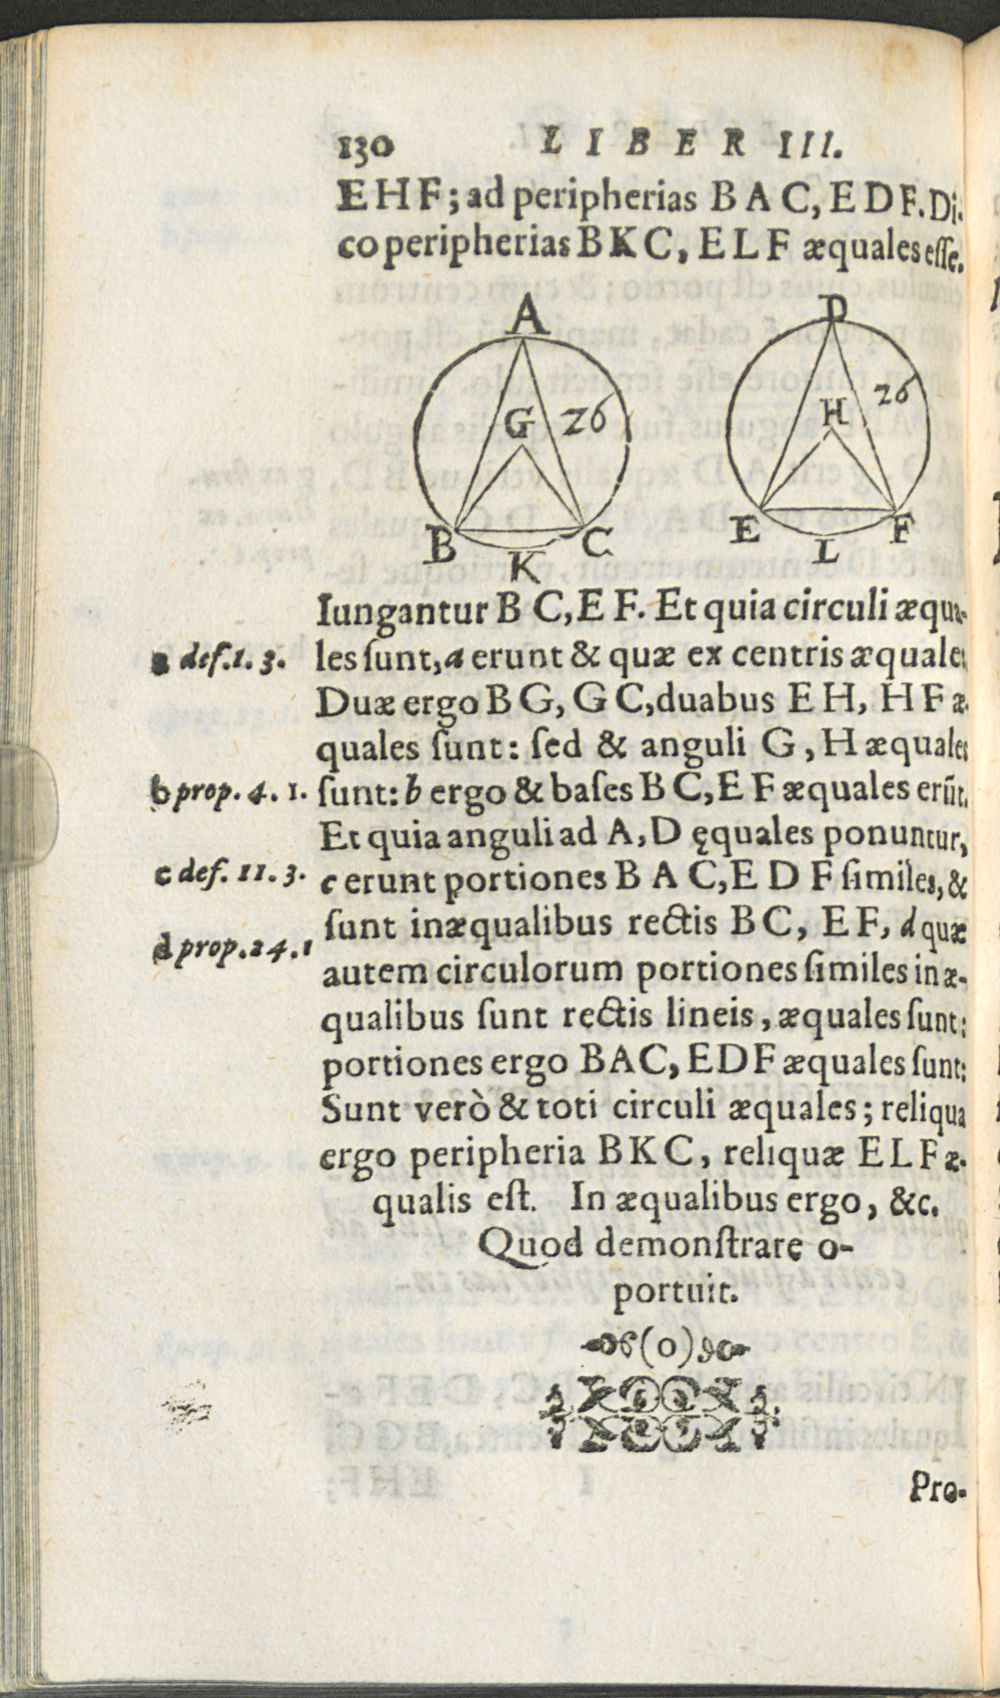 130 LIBER III.
EHF; ad peripherias BAC, EDF. Di-
co peripherias BKC, ELF æquales esse.
A D
G 26 H 26
B C E F
K L
Iungantur BC, EF. Et quia circuli æqua-
a def.1.3. les sunt, a erunt & quæ ex centris æquales
Duæ ergo BG, GC, duabus EH, HF æ-
quales sunt: sed & anguli G, H æquales
b prop. 4. 1. sunt: b ergo & bases BC, EF æquales erūt.
Et quia anguli ad A, D ęquales ponuntur,
c def. 11. 3. c erunt portiones BAC, EDF similes, &
sunt inæqualibus rectis BC, EF, d quæ
d prop. 24. 1 autem circulorum portiones similes in æ-
qualibus sunt rectis lineis, æquales sunt:
portiones ergo BAC, EDF æquales sunt:
Sunt verò & toti circuli æquales; reliqua
ergo peripheria BKC, reliquæ ELF æ-
qualis est. In æqualibus ergo, &c.
Quod demonstrare o-
portuit.
(0)
Pro-